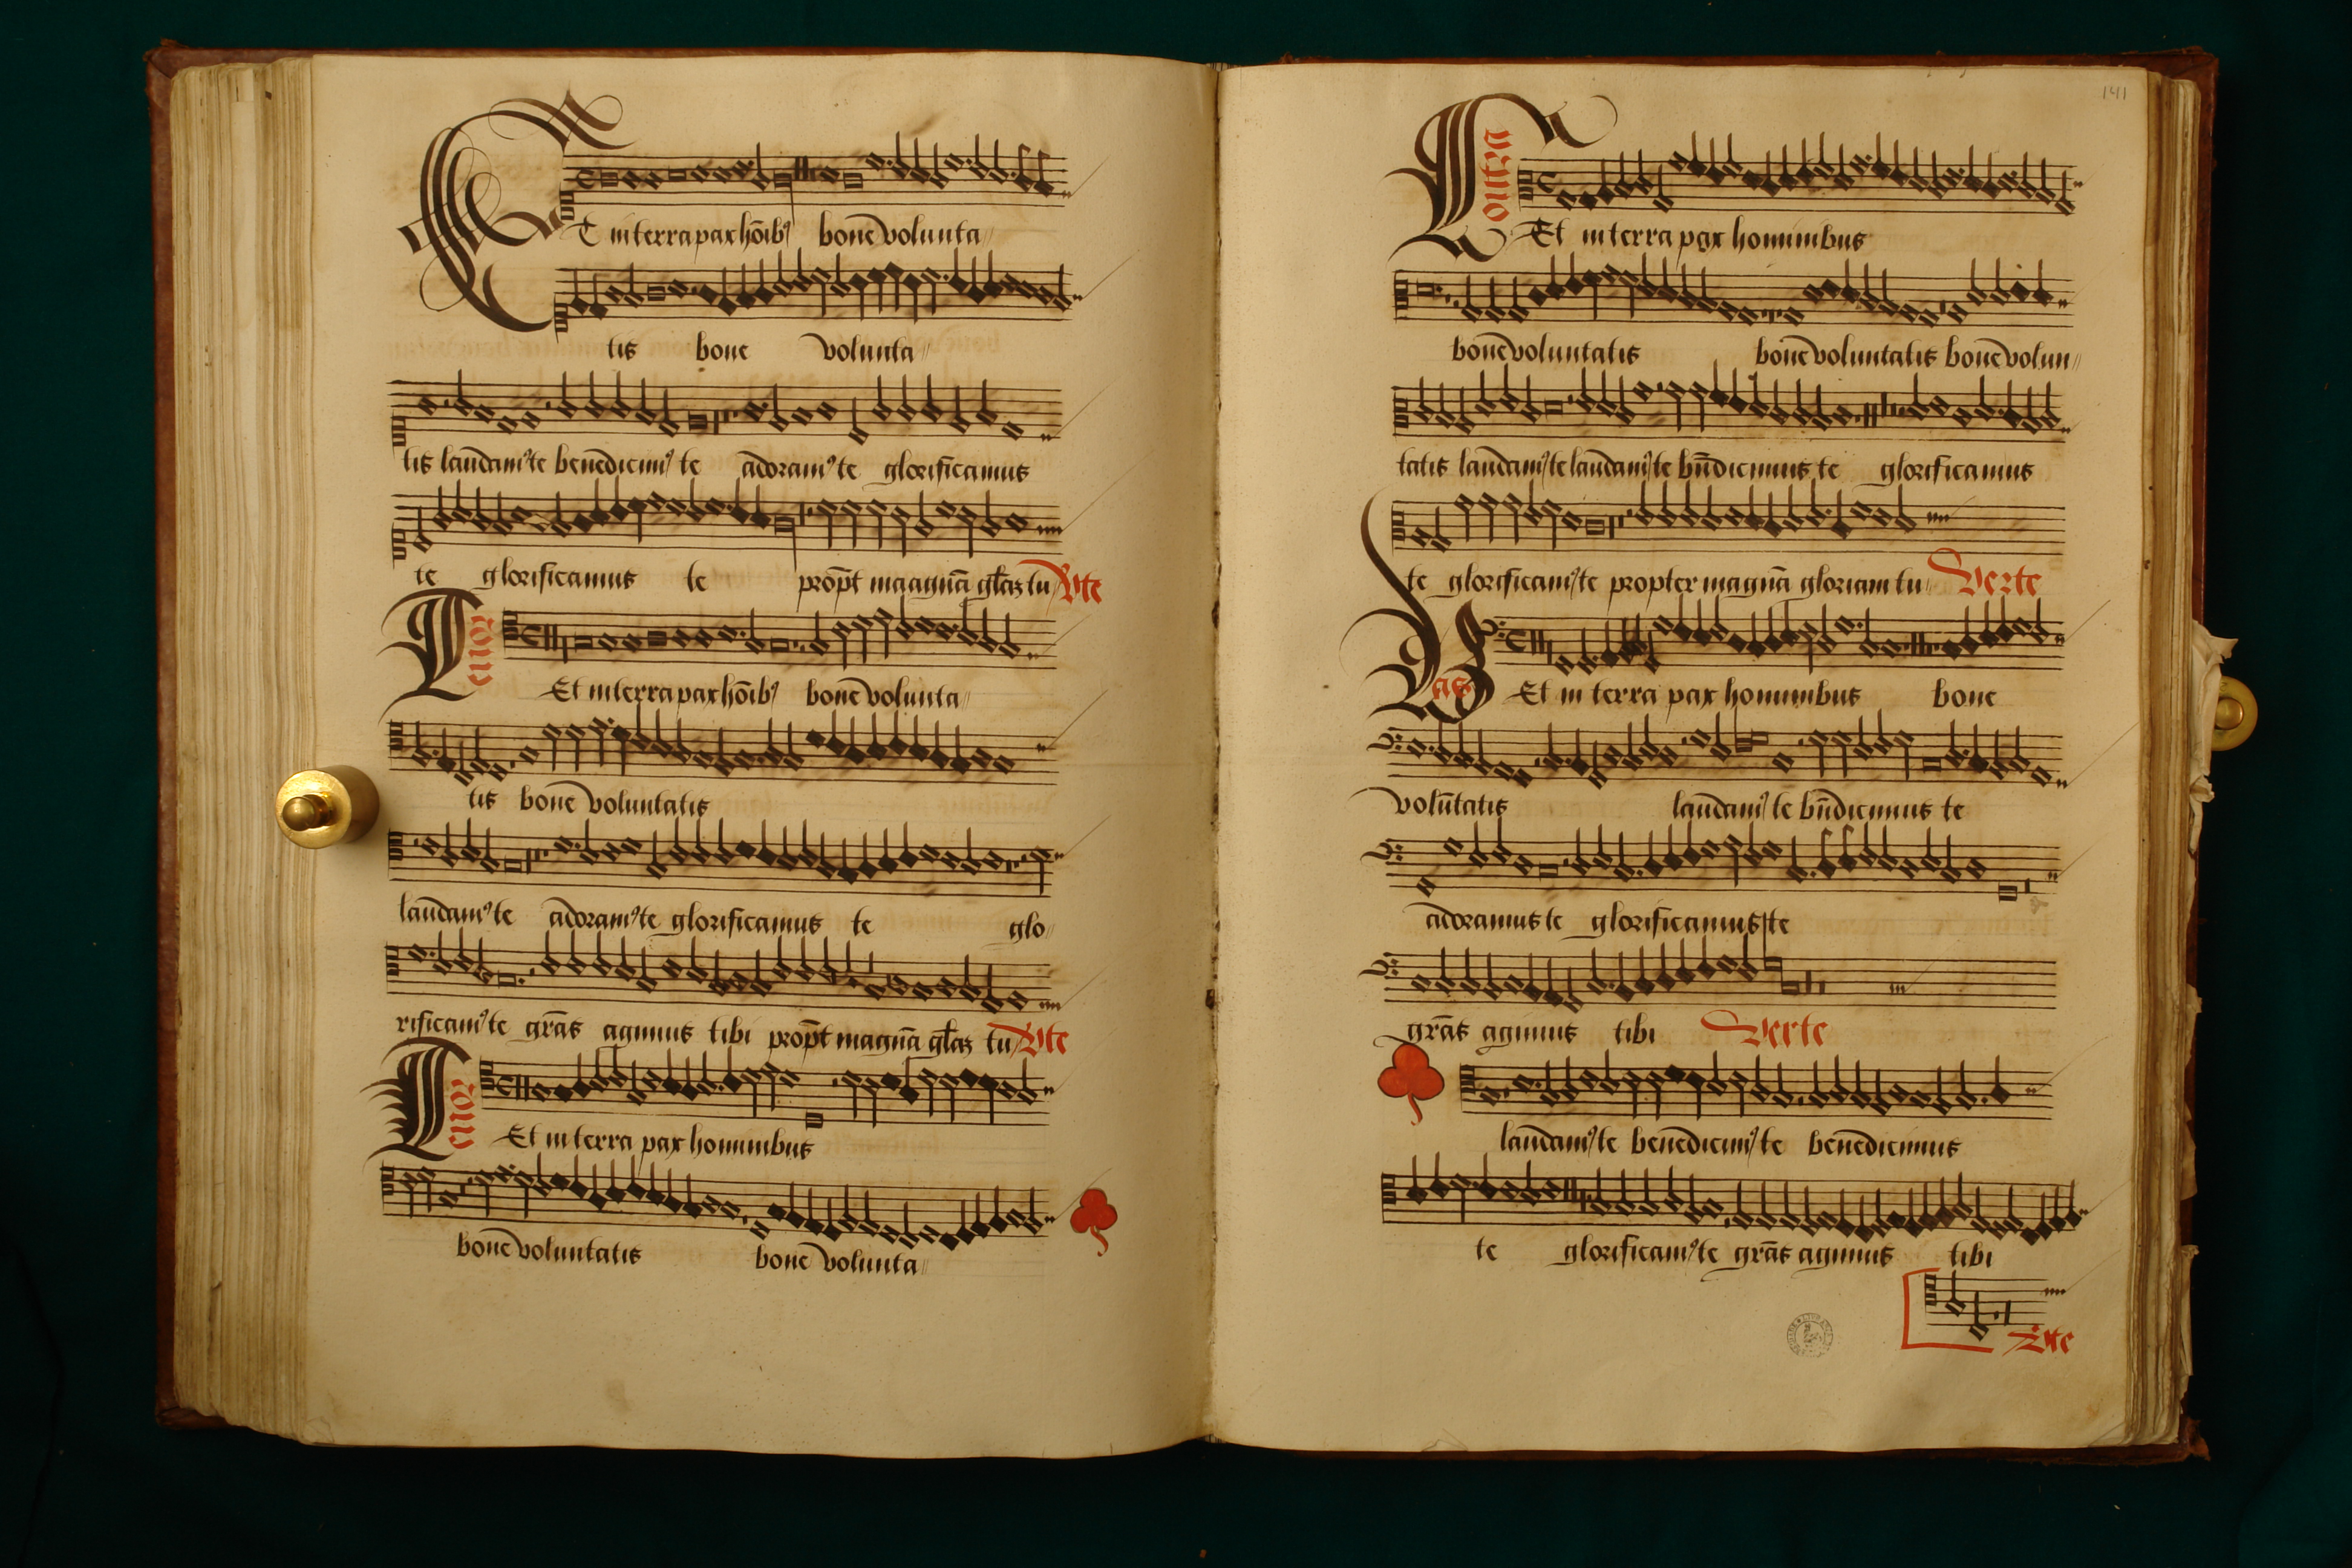 ET in terra pax hoīb⁹ bone volunta
tis bone volunta
tis laudam⁹ te benedicim⁹ te adoram⁹ te glorificamus
te glorificamus te propt maagnā gl̄az tu Vte
Tenor
Et in terra pax hoīb⁹ bone volunta
tis bone voluntatis
laudam⁹ te adoram⁹ te glorificamus te glo
rificam⁹ te grās agimus tibi propt magnā gl̄az tu Vte
Tenor
Et in terra pax hominibus
bone voluntatis bone volunta
141
Contra
Et in terra pax hominibus
bone voluntatis bone voluntatis bone volun
tatis laudam⁹ te laudam⁹ te bn̄dicimus te glorificamus
te glorificam⁹ te propter magnā gloriam tu Verte
Bas
Et in terra pax hominibus bone
volūtatis laudam⁹ te bn̄dicimus te
adoramus te glorificamus te
grās agimus tibi Verte
laudam⁹ te benedicim⁹ te benedicimus
te glorificam⁹ te grās agimus tibi
Vte